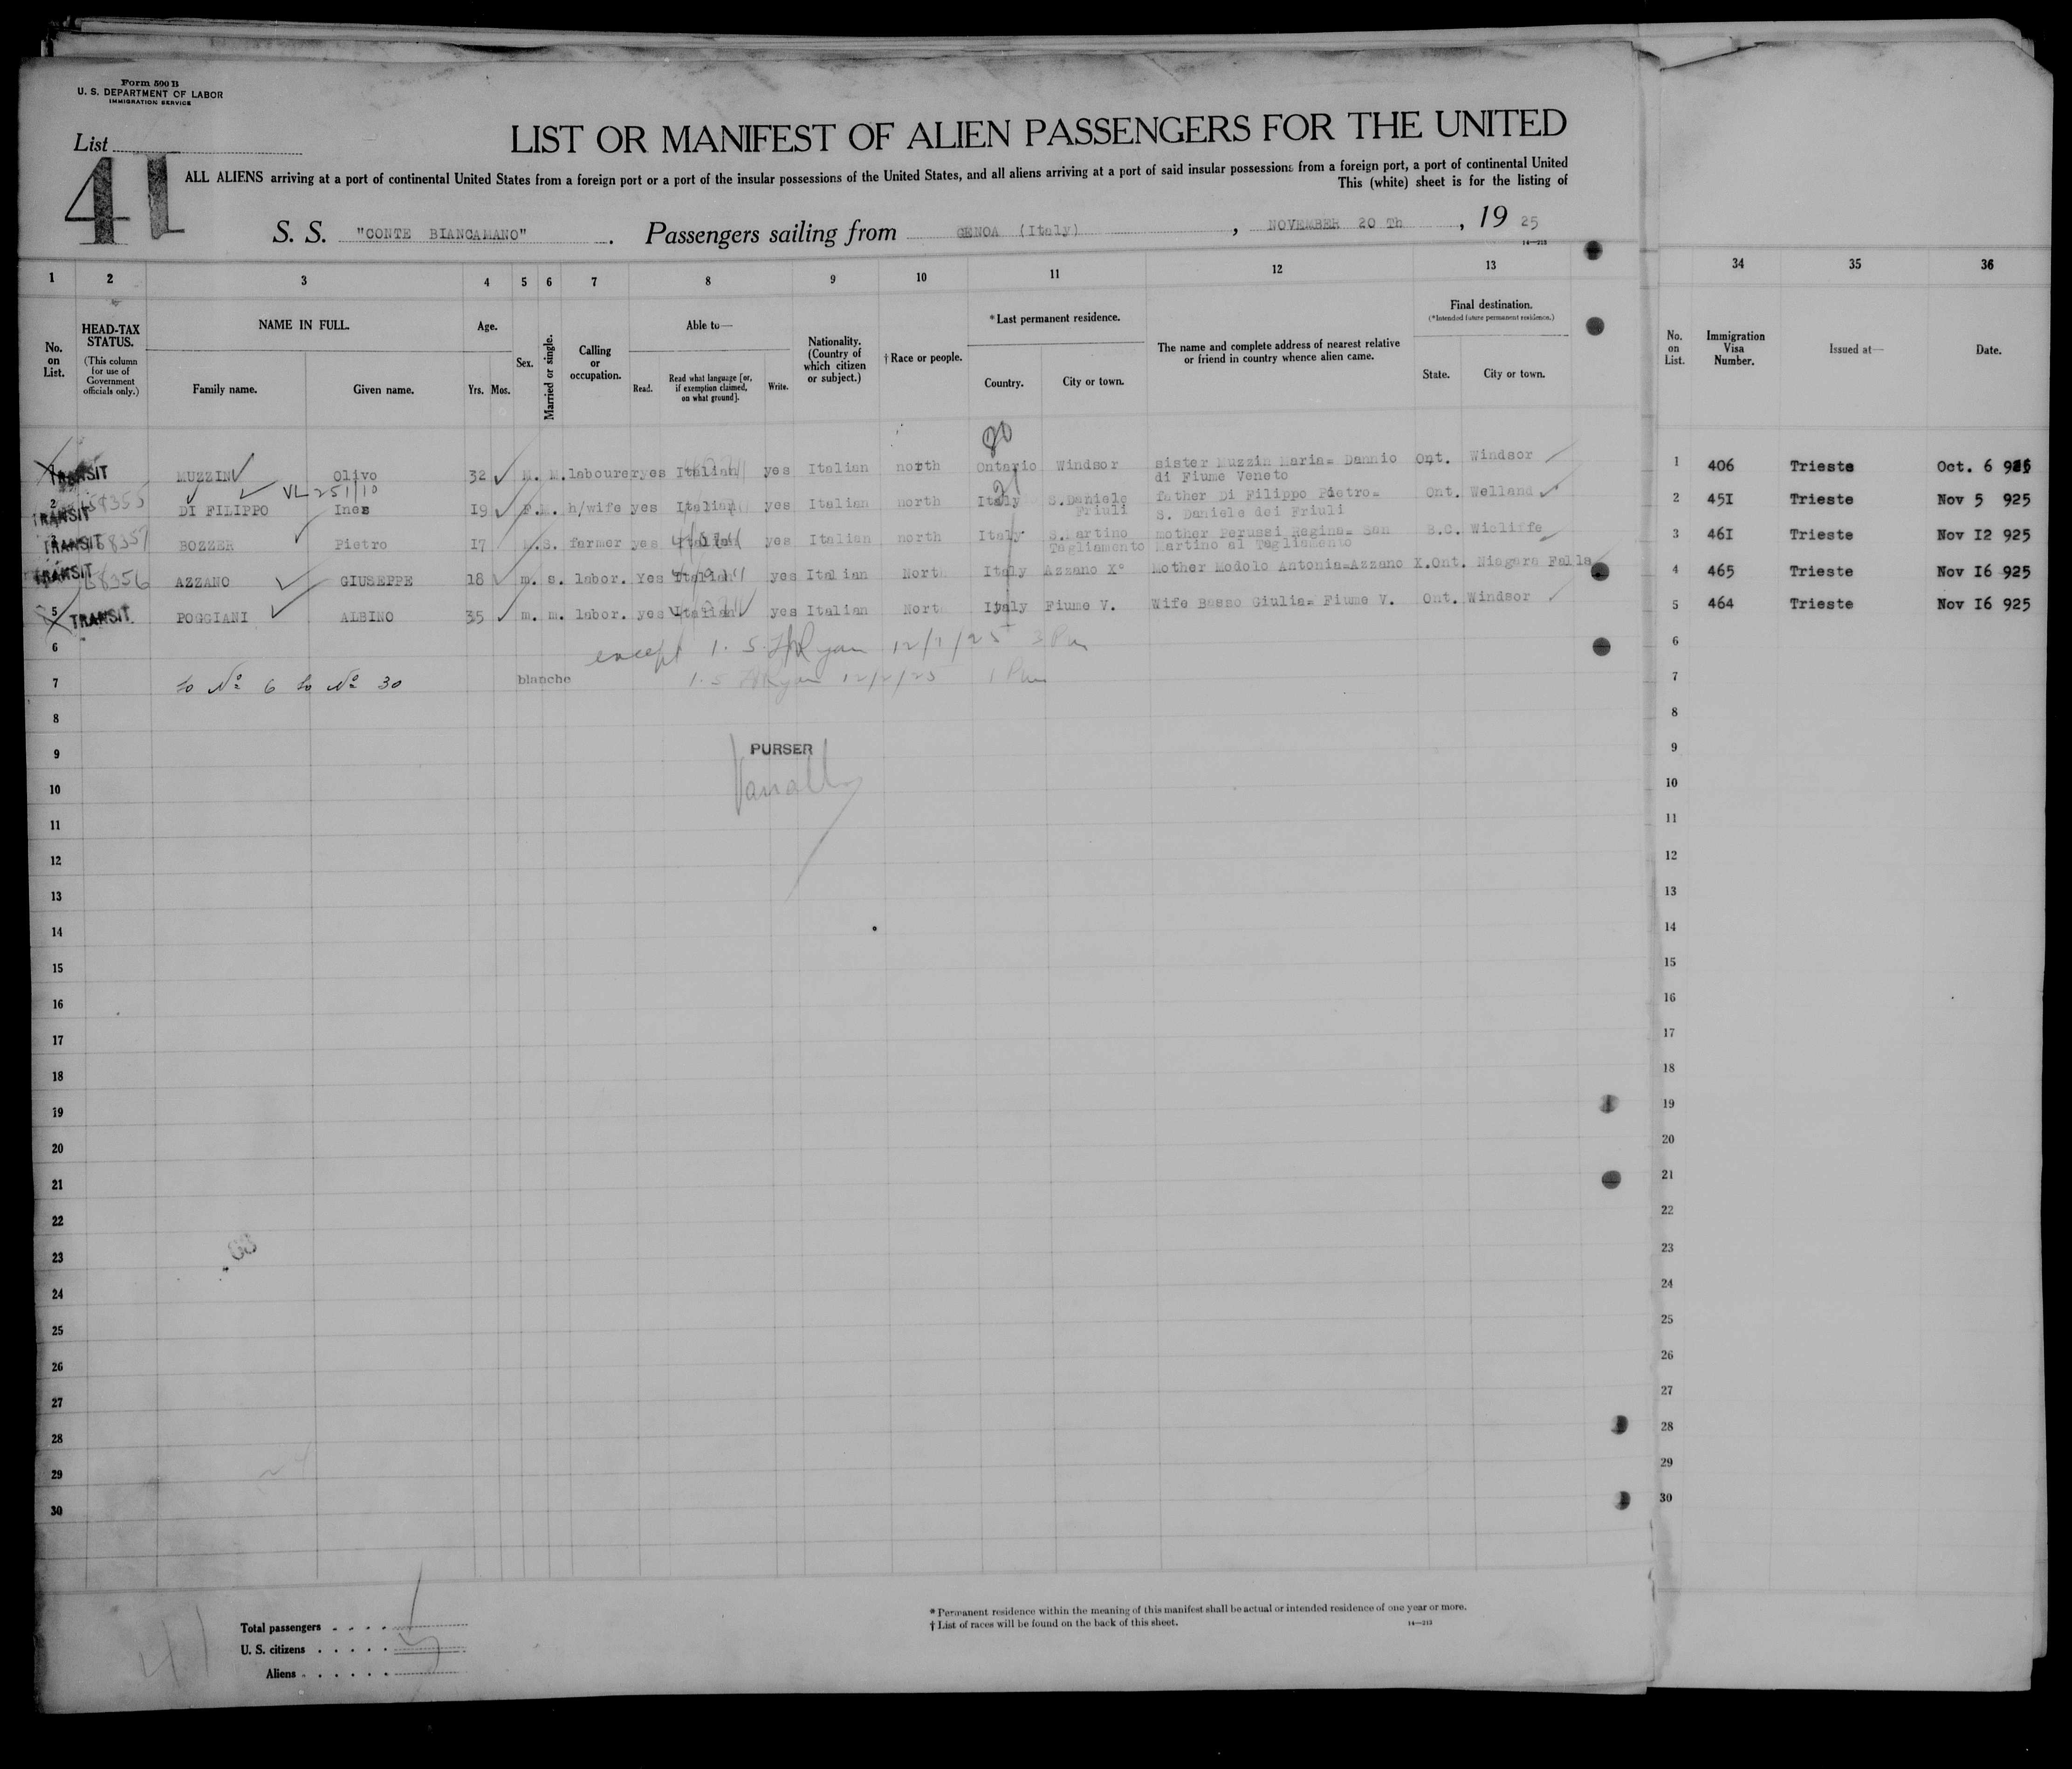 Form 500 B
U. S. DEPARTMENT OF LABOR
IMMIGRATION SERVICE
List
41
LIST OR MANIFEST OF ALIEN PASSENGERS FOR THE UNITED
ALL ALIENS arriving at a port of continental United States from a foreign port or a port of the insular possessions of the United States, and all aliens arriving at a port of said insular possessions from a foreign port, a port of continental United
This (white) sheet is for the listing of
S. S. "CONTE BIANCAMANO". Passengers sailing from GENOA (Italy), NOVEMBER 20 Th, 19 25
14—213
1 2 3 4 5 6 7 8 9 10 11 12 13 34 35 36
No. on List.
HEAD-TAX STATUS.
(This column for use of Government officials only.)
NAME IN FULL.
Family name. Given name.
Age.
Yrs. Mos.
Sex.
Married or single.
Calling or occupation.
Able to—
Read. Read what language [or, if exemption claimed, on what ground]. Write.
Nationality. (Country of which citizen or subject.)
†Race or people.
*Last permanent residence.
Country. City or town.
The name and complete address of nearest relative or friend in country whence alien came.
Final destination.
(*Intended future permanent residence.)
State. City or town.
No. on List.
Immigration Visa Number.
Issued at—
Date.
20
TRANSIT MUZZIN Olivo 32 M. M. labourer yes Italian yes Italian north Ontario Windsor sister Muzzin Maria= Dannio Ont. Windsor 1 406 Trieste Oct. 6 925
di Fiume Veneto
VL 251/10
21
2 TRANSIT 68355 DI FILIPPO Ines I9 F. M. h/wife yes Italian yes Italian north Italy S.Daniele father Di Filippo Pietro= Ont. Welland 2 45I Trieste Nov 5 925
Friuli S. Daniele dei Friuli
3 TRANSIT 68357 BOZZER Pietro I7 M. S. farmer yes Italian yes Italian north Italy S.Martino mother Perussi Regina= San B.C. Wicliffe 3 46I Trieste Nov I2 925
Tagliamento Martino al Tagliamento
TRANSIT 68356 AZZANO GIUSEPPE 18 m. s. labor. Yes Italian yes Italian North Italy Azzano X° Mother Modolo Antonia=Azzano X. Ont. Niagara Falls 4 465 Trieste Nov I6 925
5 TRANSIT POGGIANI ALBINO 35 m. m. labor. yes Italian yes Italian North Italy Fiume V. Wife Basso Giulia= Fiume V. Ont. Windsor 5 464 Trieste Nov I6 925
6 except 1. S. Ryan 12/1/25 3 Pm 6
7 to No 6 to No 30 blanche 1. S Ryan 12/2/25 1 Pm 7
8 8
9 PURSER 9
10 10
11 11
12 12
13 13
14 14
15 15
16 16
17 17
18 18
19 19
20 20
21 21
22 22
23 23
24 24
25 25
26 26
27 27
28 28
29 29
30 30
41
Total passengers
U. S. citizens
Aliens
5
*Permanent residence within the meaning of this manifest shall be actual or intended residence of one year or more.
†List of races will be found on the back of this sheet. 14—213